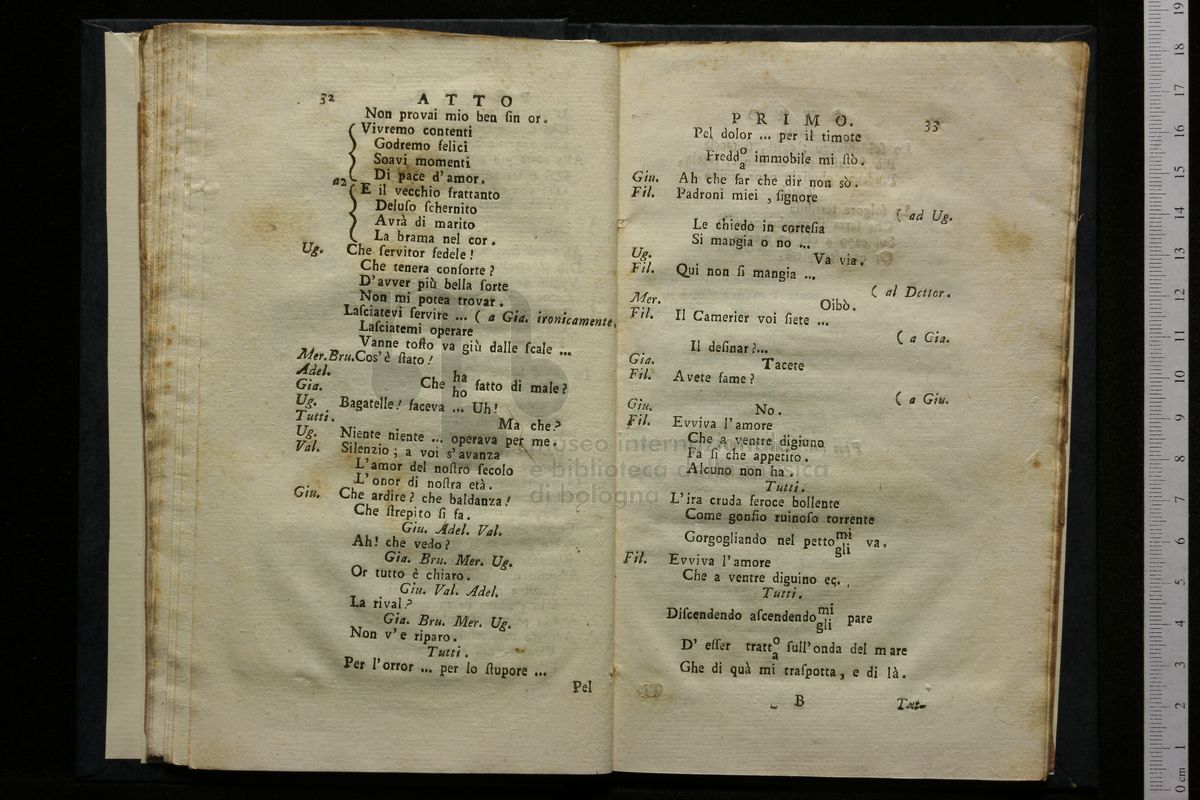 32 ATTO
Non provai mio ben ſin or.
Vivremo contenti
Godremo felici
Soavi momenti
Di pace d'amor.
a2
E il vecchio frattanto
Deluſo ſchernito
Avrà di marito
La brama nel cor.
Ug. Che ſervitor fedele!
Che tenera conſorte?
D'avver più bella ſorte
Non mi potea trovar.
Laſciatevi ſervire ... ( a Gia. ironicamente.
Laſciatemi operare
Vanne toſto va giù dalle ſcale ...
Mer. Bru. Cos'è ſtato!
Adel.
Gia. Che ha ho fatto di male?
Ug. Bagatelle! faceva ... Uh!
Tutti. Ma che?
Ug. Niente niente ... operava per me.
Val. Silenzio; a voi s'avanza
L'amor del noſtro ſecolo
L'onor di noſtra età.
Giu. Che ardire? che baldanza!
Che ſtrepito ſi fa.
Giu. Adel. Val.
Ah! che vedo?
Gia. Bru. Mer. Ug.
Or tutto è chiaro.
Giu. Val. Adel.
La rival?
Gia. Bru. Mer. Ug.
Non v'e riparo.
Tutti.
Per l'orror ... per lo ſtupore ...
Pel
PRIMO. 33
Pel dolor ... per il timote
Freddo a immobile mi ſtò.
Giu. Ah che far che dir non sò.
Fil. Padroni miei, ſignore
( ad Ug.
Le chiedo in corteſia
Si mangia o no ...
Ug. Va via.
Fil. Qui non ſi mangia ...
( al Dottor.
Mer. Oibò.
Fil. Il Camerier voi ſiete ...
( a Gia.
Il deſinar?...
Gia. Tacete
Fil. Avete fame?
( a Giu.
Giu. No.
Fil. Evviva l'amore
Che a ventre digiuno
Fa ſi che appetito.
Alcuno non ha.
Tutti.
L'ira cruda feroce bollente
Come gonfio ruinoſo torrente
Gorgogliando nel petto mi gli va.
Fil. Evviva l'amore
Che a ventre diguino ec.
Tutti.
Diſcendendo aſcendendo mi gli pare
D' eſſer tratto a ſull'onda del mare
Ghe di quà mi traſpotta, e di là.
B
Tut-
museo internazionale
e biblioteca della musica
di bologna
19
18
17
16
15
14
13
12
11
10
9
8
7
6
5
4
3
2
1
0 cm